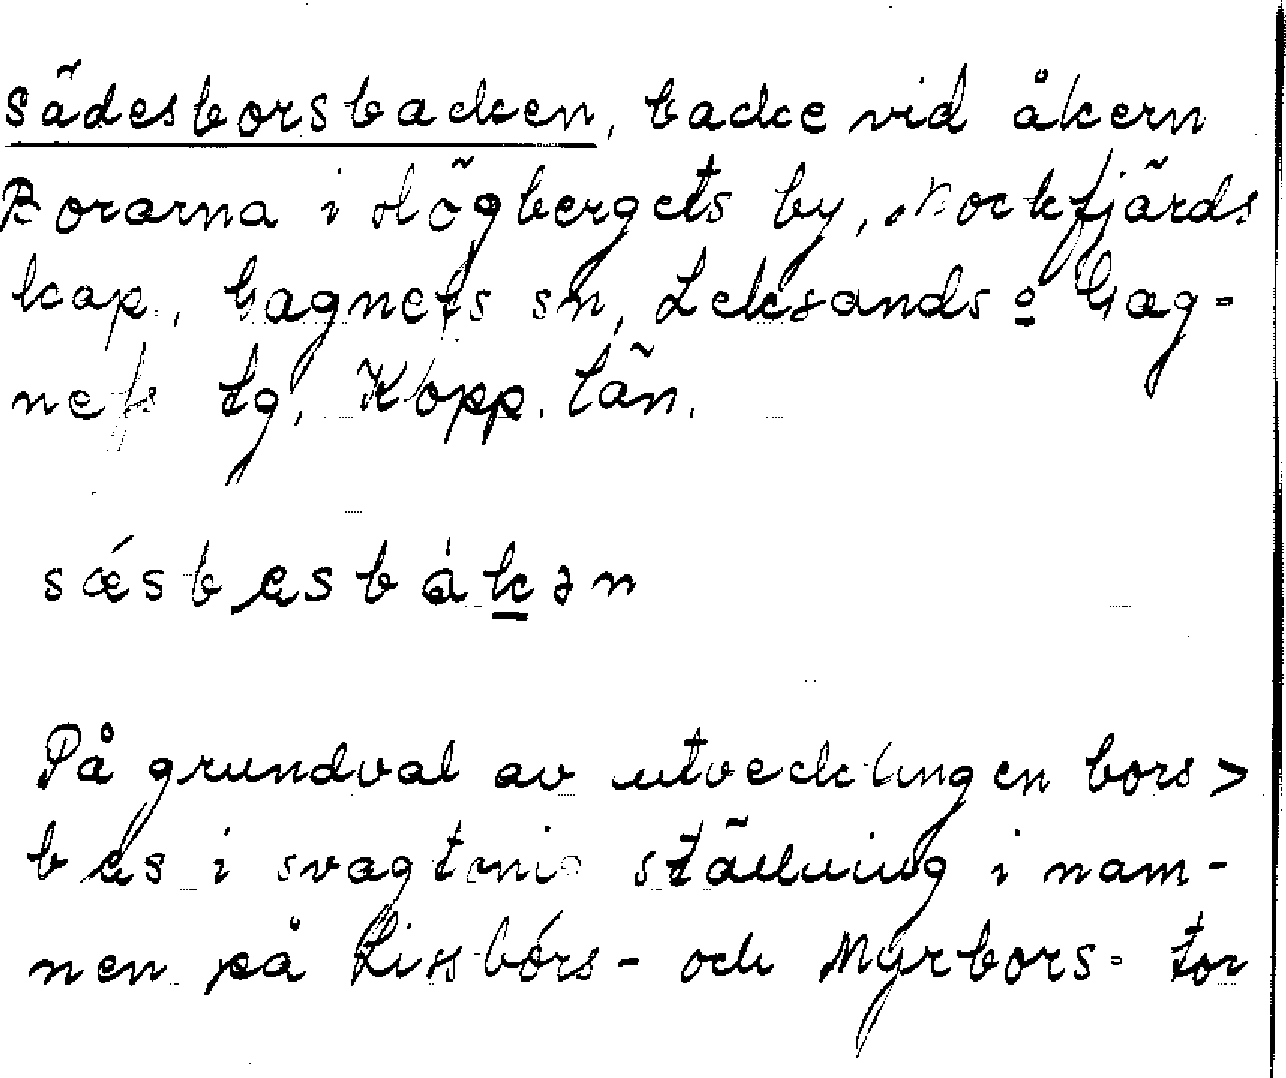 Sädesborsbacken, backe vid åkern
Borarna i Högbergets by, Mockfjärds
kap., Gagnefs sn, Leksands o Gag-
nefs tg, Kopp. län.
sæ´sbɐsbákən
På grundval av utvecklingen bors >
bɐs i svagtonig ställning i nam-
nen på Lissbórs- och Myrbors- tor